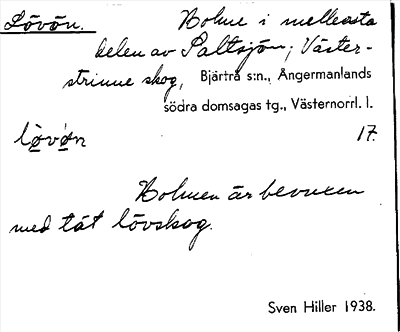 Lövön. Holme i mellersta
delen av Saltsjön, Väster-
strinne skog, Bjärtrå s:n., Ångermanlands
södra domsagas tg., Västernorrl. l.
lòvòn 17.
Holmen är bevuxen
med tät lövskog.
Sven Hiller 1938.